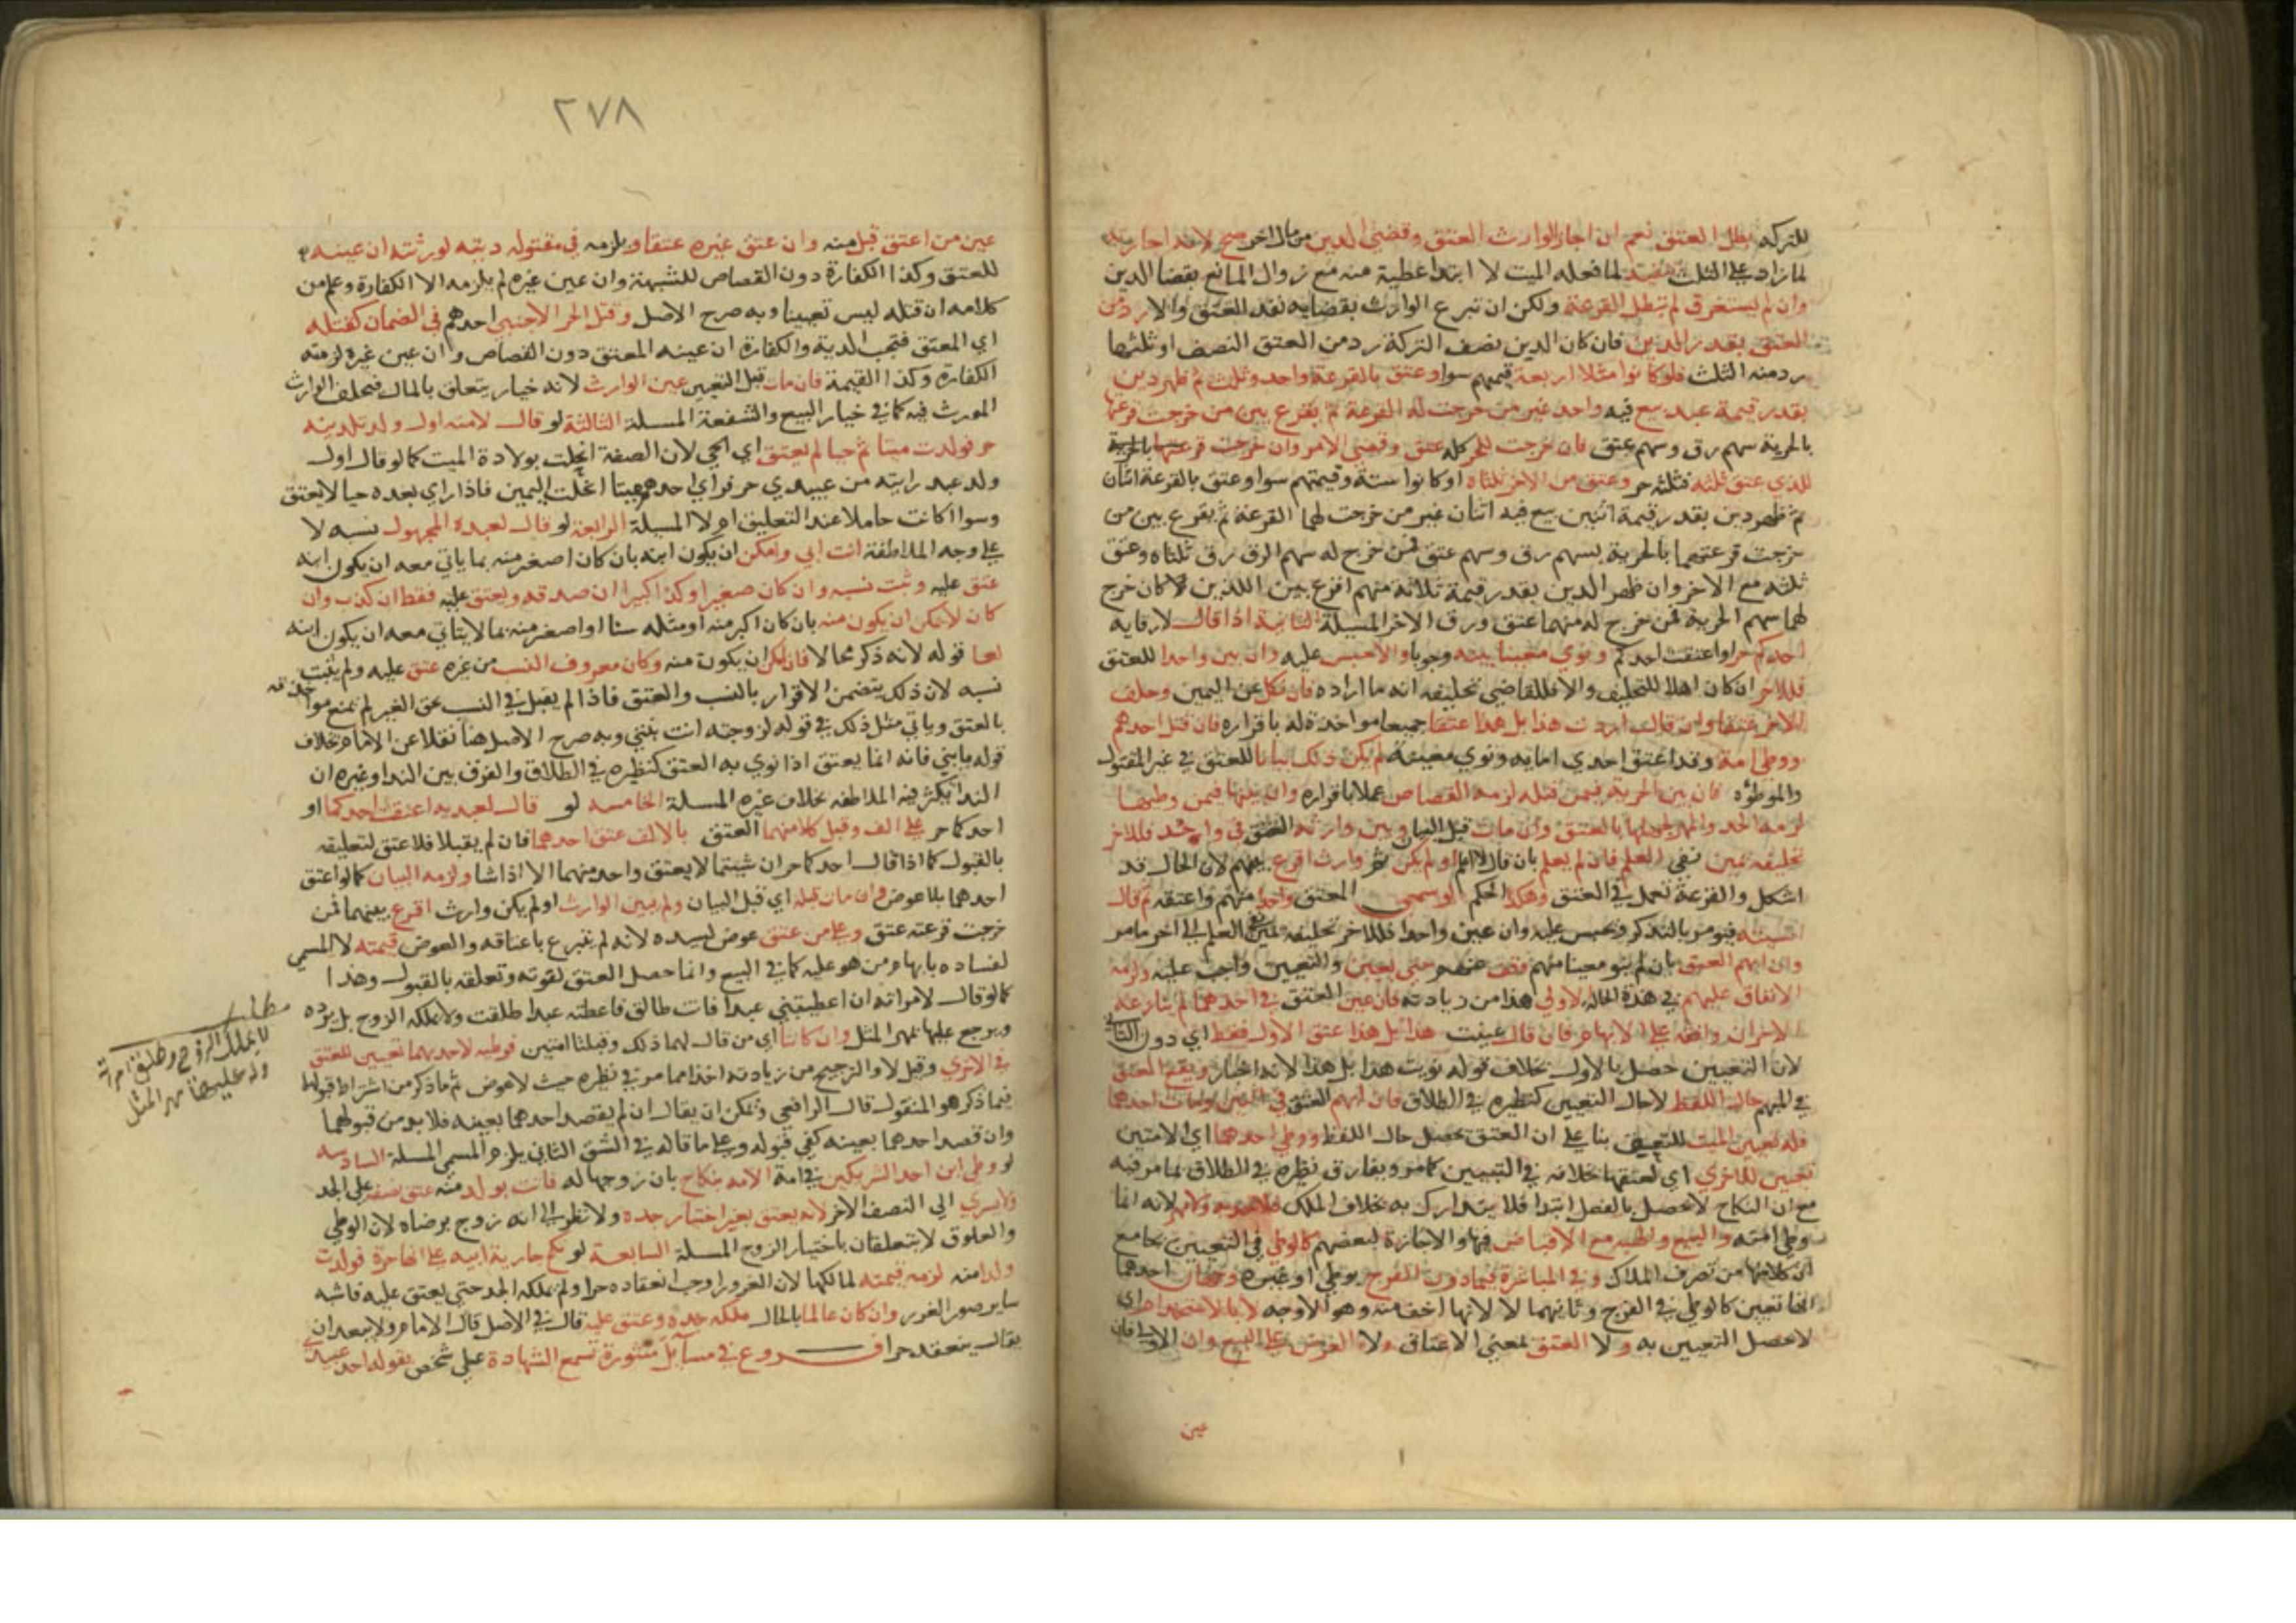 للتركه بطل العتق نعم ان اجاز الوارث العتق وقضي الدين من مال اخر صح لانه اجازته
لما زاد علي الثلث تنفيذ لما فعله الميت لا ابتدا عطية منه مع زوال المانع بقضا الدين
وان لم يستغرق لم تبطل القرعة ولكن ان تبرع الوارث بقضايه نفذ العتق والا رد من
العتق بقدر الدين فان كان الدين نصف التركة رد من العتق النصف او ثلثها
رد منه الثلث فلو كانوا مثلا اربعة قيمهم سوا وعتق بالقرعة واحد وثلث ثم ظهر دين
بقدر قيمة عبد بيع فيه واحد غير من خرجت له القرعة ثم يقرع بين من خرجت قرعتها
بالحرية سهم رق وسهم عتق فان خرجت للحر كله عتق وقضي الامر وان خرجت قرعتها بالحرية
للذي عتق ثلثه فثلثه حر وعتق من الاخر ثلثاه او كانوا ستة وقيمتهم سوا وعتق بالقرعة اثنان
ثم ظهر دين بقدر قيمة اثنين بيع فيه اثنان غير من خرجت لهما القرعة ثم يقرع بين من
خرجت قرعتهما بالحرية بسهم رق وسهم عتق فمن خرج له سهم الرق رق ثلثاه وعتق
ثلثه مع الاخر وان ظهر الدين بقدر قيمة ثلاثة منهم اقرع بين اللذين كان خرج
لهما سهم الحرية فمن خرج له منهما عتق ورق الاخر المسيلة الثانية اذا قال لارقايه
احدكم حر او اعتقت احدكم ونوي معينا بينه وجوبا والا حبس عليه وان بين واحدا للعتق
فللاخر ان كان اهلا للتحليف والا فللقاضي تحليفه انه ما اراده فان نكل عن اليمين وحلف
الاخر عتقا وان قال اردت هذا بل هذا عتقا جميعا مواخذة له باقراره فان قتل احدهم
ووطي امة وقد اعتق احدي امايه ونوي معينة لم يكن ذلك بيانا للعتق في غير المقتول
والموطؤه فان بين الحرية فيمن قتله لزمه القصاص عملا باقراره وان بينها فيمن وطيها
لزمه الحد والمهر لجهلها بالعتق وان مات قبل البيان وبين وارثه العتق في واحد فللاخر
تحليفه يمين نفي العلم فان لم يعلم بان قال لا اعلم او لم يكن ثم وارث اقرع بينهم لان الحال قد
اشكل والقرعة تعمل في العتق وهكذا الحكم لو سمي المعتق واحدا منهم واعتقه ثم قال
انسيته فيومر بالتذكر ويحبس عليه وان عين واحدا فللاخر تحليفه يمين نفي العلم الي اخر ما مر
وان ابهم العتق بان لم ينو معينا منهم وقف عنهم حتي يعين والتعيين واجب عليه ولزمه
الانفاق عليهم في هذه الحاله والاولي هذا من زيادته فان عين العتق في احدهما لم ينازعه
الاخران وافقه علي الابهام فان قال عينت هذا بل هذا عتق الاول فقط اي دون الثاني
لان التعيين حصل بالاول بخلاف قوله نويت هذا بل هذا لانه اخبار ويقع العتق
في المبهم حال اللفظ لا حال التعيين كنظيره في الطلاق فان ابهم العتق في امتين ومات احدهما
فله تعيين الميت للتعيين بنا علي ان العتق يحصل حال اللفظ ووطي احدهما اي الامتين
تعيين للاخري اي لعتقها خلافه في التبيين كما مر ويفارق نظيره في الطلاق لما مر فيه
مع ان النكاح لا يحصل بالفعل ابتدا فلا يتدارك به بخلاف الملك فلا حد به ولا مهر لانه انما
وطي امته والبيع والهبة مع الاقباض فيها والاجارة لبعضهم كالوطي في التعيين بجامع
ان كلا منها من تصرف الملاك وفي المباشرة فيما دون الفرج بوطي او غيره وجهان احدهما
انها تعيين كالوطي في الفرج وثانيهما لا لانها اخف منه وهو الاوجه
لا يحصل التعيين به ولا العتق بمعني الاعتاق ولا العرض علي البيع وان
عين
٢٧٨
عين من اعتق قبل منه وان عتق غيره عتقا ويلزمه في مقتوله ديته لورثته ان عينه
للعتق وكذا الكفارة دون القصاص للشبهة وان عين غيره لم يلزمه الا الكفارة وعلم من
كلامه ان قتله ليس تعيينا وبه صرح الاصل وقتل الحر الاجنبي احدهم في الضمان كقتله
اي المعتق فتجب الدية والكفارة ان عينه المعتق دون القصاص وان عين غيره لزمته
الكفارة وكذا القيمة فان مات قبل التعيين عين الوارث لانه خيار يتعلق بالمال فيخلف الوارث
المورث فيه كما في خيار البيع والشفعة المسلة الثالثة لو قال لامته اول ولد تلدينه
حر فولدت ميتا ثم حيا لم يعتق اي الحي لان الصفة انحلت بولادة الميت كما لو قال اول
ولد عبد رايته من عبيدي حر فراي احدهم ميتا انحلت اليمين فاذا راي بعده حيا لا يعتق
وسوا اكانت حاملا عند التعليق ام لا المسيلة الرابعة لو قال لعبده المجهول نسبه لا
علي وجه الملاطفة انت ابني وامكن ان يكون ابنه بان كان اصغر منه بما ياتي معه ان يكون ابنه
عتق عليه وثبت نسبه وان كان صغيرا وكذا كبيرا ان صدقه ويعتق عليه فقط ان كذبه وان
كان لا يمكن ان يكون منه بان كان اكبر منه او مثله سنا او اصغر منه بما لا يتاتي معه ان يكون ابنه
لغا قوله لانه ذكر محالا فان امكن ان يكون منه وكان معروف النسب من غيره عتق عليه ولم يثبت
نسبه لان ذلك يتضمن الاقرار بالنسب والعتق فاذا لم يقبل في النسب لحق الغير لم يمنع مواخذته
بالعتق وياتي مثل ذلك في قوله لزوجته انت بنتي وبه صرح الاصل هنا نقلا عن الامام بخلاف
قوله يا بني فانه انما يعتق اذا نوي به العتق كنظيره في الطلاق والفرق بين الندا وغيره ان
الندا يكثر فيه الملاطفه بخلاف غيره المسلة الخامسه لو قال لعبديه اعتقت احدكما او
احدكما حر علي الف وقبل كلا منهما العتق بالالف عتق احدهما فان لم يقبلا فلا عتق لتعليقه
بالقبول كما اذا قال احدكما حر ان شيتما لا يعتق واحد منهما الا اذا شا ولزمه البيان كما لو اعتق
احدهما بلا عوض وان مات قبله اي قبل البيان ولم يبين الوارث او لم يكن وارث اقرع بينهما فمن
خرجت قرعته عتق وعلي من عتق عوض لسيده لانه لم يتبرع باعتاقه والعوض قيمته لا المسمي
لفساده بابهام من هو عليه كما في البيع وانما حصل العتق لقوته وتعلقه بالقبول وهذا
كما لو قال لامراته ان اعطيتني عبدا فانت طالق فاعطته عبدا طلقت ولا يملكه الزوج بل يرده
ويرجع عليها بمهر المثل وان كانتا اي من قال لهما ذلك وقبلتا امتين فوطيه لاحديهما تعيين للعتق
في الاخري وقيل لا والترجيح من زيادته اخذا مما مر في نظيره حيث لا عوض ثم ما ذكر من اشتراط قبولهما
فيما ذكر هو المنقول قال الرافعي ويمكن ان يقال ان لم يقصد احدهما بعينه فلا بد من قبولهما
وان قصد احدهما بعينه كفي قبوله وعلي ما قاله في الشق الثاني يلزم المسمي المسلة السادسه
لو وطي ابن احد الشريكين في امة الامه بنكاح بان زوجها له فاتت بولد منه عتق نصفه علي الجد
ولا يسري الي النصف الاخر لانه يعتق بغير اختيار جده ولا نظر الي انه زوج برضاه لان الوطي
والعلوق لا يتعلقان باختيار الزوج المسلة السابعة لو نكح جارية ابيه علي انها حرة فولدت
ولدا منه لزمه قيمته لمالكها لان الغرور اوجب انعقاده حرا ولم يملكه الجد حتي يعتق عليه فاشبه
ساير صور الغرور وان كان عالما بالحال ملكه جده وعتق عليه قال في الاصل قال الامام ولا يبعد ان
يقال ينعقد حرا فـــروع في مسايل منثورة تسمع الشهادة علي شخص بقوله احد عبيدي
مطلب
لا يملك الزوج وطلق امراته
وله عليها مهر المثل